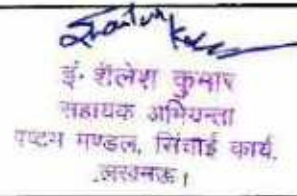 इं. शैलेश कुमार
सहायक अभियन्ता
मण्डल, सिंचाई कार्य,
लखनऊ।